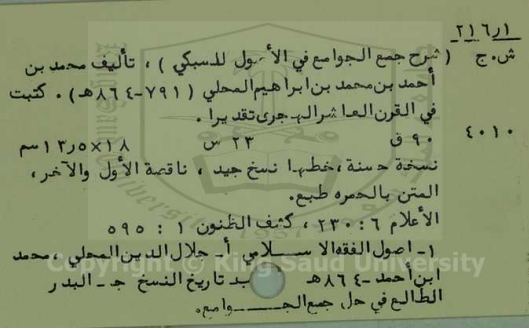 ٢١٦٫١
ش.ج (شرح جمع الجوامع في الأصول للسبكي)، تأليف محمد بن
أحمد بن محمد بن ابراهيم المحلي (٧٩١-٨٦٤هـ). كتبت
في القرن العاشر الهجرى تقديرا.
٤٠١٠ ٩٠ ق ٢٣ س ١٨×١٣٫٥ سم
نسخة حسنة، خطها نسخ جيد، ناقصة الأول والآخر،
المتن بالحمره طبع.
الأعلام ٦: ٢٣٠، كشف الظنون ١: ٥٩٥
١- اصول الفقه الاسلامي أ- جلال الدين المحلي، محمد
ابن أحمد-٨٦٤هـ ب- تاريخ النسخ ج- البدر
الطالع في حل جمع الجوامع.
Copyright © King Saud University